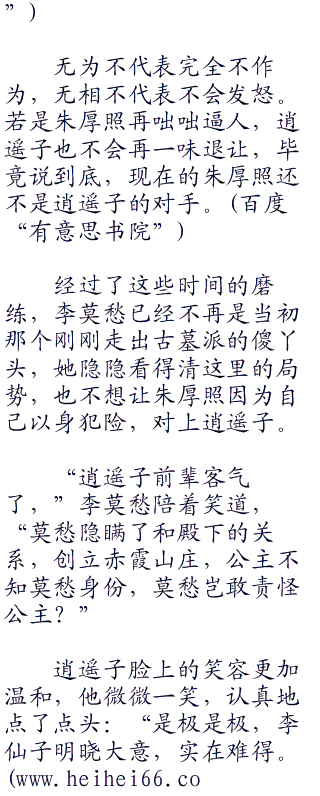 ”)
无为不代表完全不作
为，无相不代表不会发怒。
若是朱厚照再咄咄逼人，逍
遥子也不会再一味退让，毕
竟说到底，现在的朱厚照还
不是逍遥子的对手。(百度
“有意思书院”)
经过了这些时间的磨
练，李莫愁已经不再是当初
那个刚刚走出古墓派的傻丫
头，她隐隐看得清这里的局
势，也不想让朱厚照因为自
己以身犯险，对上逍遥子。
“逍遥子前辈客气
了，”李莫愁陪着笑道，
“莫愁隐瞒了和殿下的关
系，创立赤霞山庄，公主不
知莫愁身份，莫愁岂敢责怪
公主？”
逍遥子脸上的笑容更加
温和，他微微一笑，认真地
点了点头：“是极是极，李
仙子明晓大意，实在难得。
(www.heihei66.co